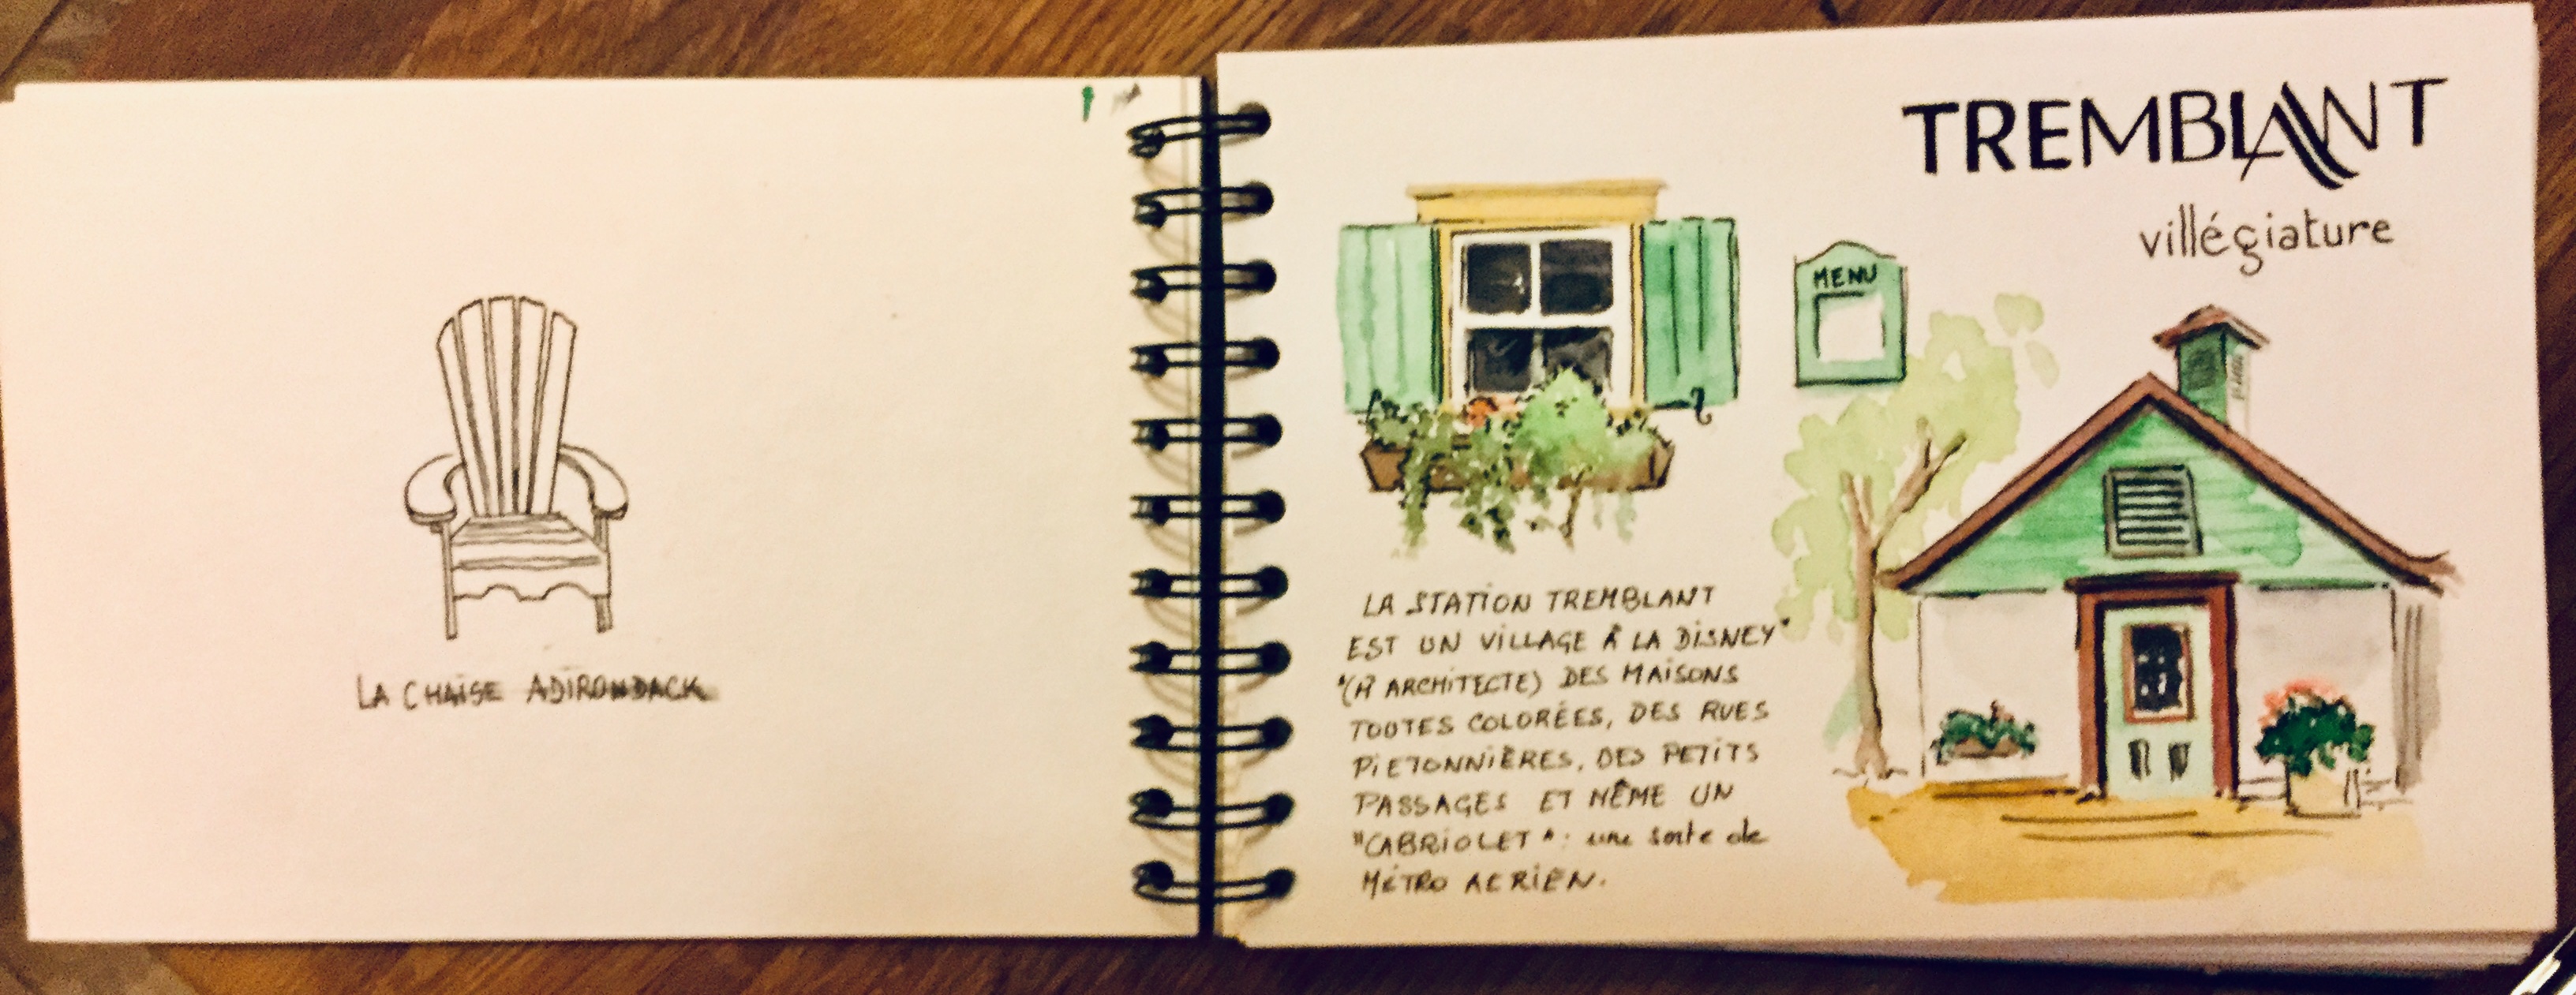 LA CHAISE ADIRONDACK
TREMBLANT
villégiature
MENU
LA STATION TREMBLANT
EST UN VILLAGE À LA DISNEY"
"(M ARCHITECTE) DES MAISONS
TOUTES COLORÉES, DES RUES
PIETONNIÈRES, DES PETITS
PASSAGES ET MÊME UN
"CABRIOLET": une sorte de
MÉTRO AERIEN.